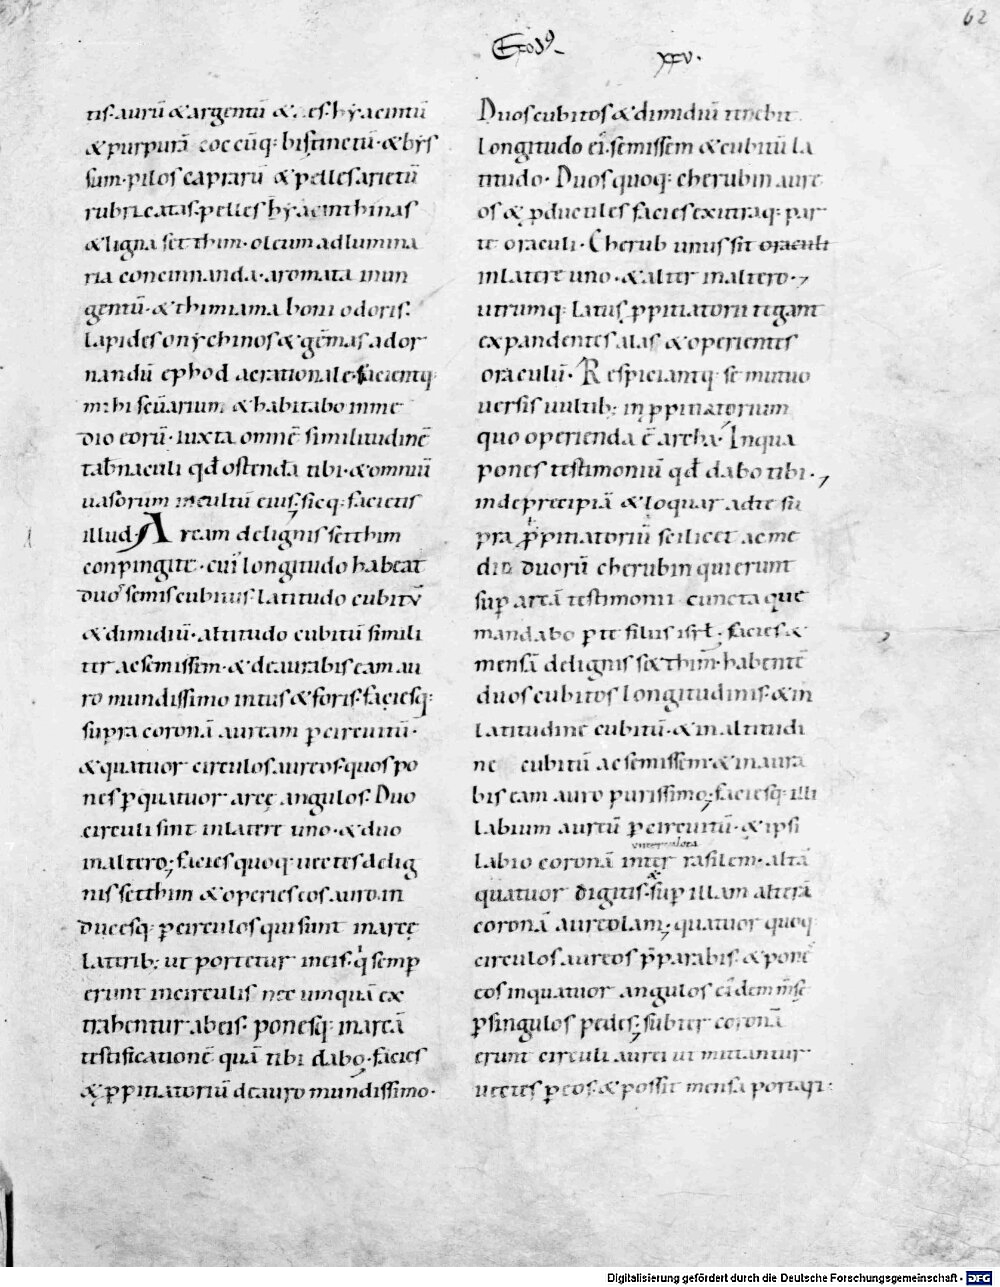 62
Exod9
xxv.
tis. aurū & argentū & aes. hyacintū
& purpurā coccūq; bistinctū. & bys
sum. pilos caprarū & pelles arietū
rubricatas. pelles hyacinthinas
& ligna setthim. oleum ad lumina
ria concinnanda. aromata inun
gentū. & thimiama boni odoris.
Lapides onychinos & gēmas ad or
nandū ephod ac rationale. facientq;
mihi scūarium & habitabo in me
dio eorū. iuxta omnē similitudinē
tab̄naculi qd̄ ostendā tibi. & omniū
uasorum in cultū eius; sicq; facietis
illud. Arcam de lignis setthim
conpingite. cui longitudo habeat
duos semis cubitus. latitudo cubitū
& dimidiū. altitudo cubitū simili
ter ac semissem. & deaurabis eam au
ro mundissimo intus & foris. faciesq;
supra coronā auream p circuitū.
& quatuor circulos aureos. quos po
nes p quatuor arcę angulos. Duo
circuli sint in latere uno. & duo
in altero; facies quoq; uectes de lig
nis setthim & operies eos auro. in
ducesq; p circulos qui sunt in arcę
Laterib; ut portetur in eis. q̄ semp
erunt in circulis nec umquā ex
trahentur ab eis. ponesq; in arcā
testificationē quā tibi dabo. facies
& ppitiatoriū de auro mundissimo.
Duos cubitos & dimidiū tenebit
longitudo ei. semissem & cubitū la
titudo. Duos quoq; cherubin aure
os & pductiles facies ex utraq; par
te oraculi. Cherub unus sit oraculi
in latere uno. & alter in altero;
utrumq; latus ppitiatorii tegant
expandentes alas & operientes
oraculū. Respiciantq; se mutuo
uersis uultib; in ppitiatorium
quo operienda ē archa. In qua
pones testimoniū qd̄ dabo tibi.;
inde precipiā & loquar ad te su
pra ppitiatoriū scilicet ac me
dio duorū cherubin qui erunt
sup arcā testimonii cuncta que
mandabo p te filiis isrł. facies &
mensā de lignis setthim. habentē
duos cubitos longitudinis. & in
latitudine cubitū. & in altitudi
ne cubitū ac semissem & inaura
bis eam auro purissimo; faciesq; illi
labium aureū p circuitū. & ipsi
labio coronā inter rasilem. altā
quatuor digitis. & sup illam alterā
coronā aureolam; quatuor quoq;
circulos aureos p̄parabis. & ponē
eos in quatuor angulos eīdem mēse
p singulos pedes; subter coronā
erunt circuli aurei ut mittantur
uectes p eos. & possit mensa portari.
Digitalisierung gefördert durch die Deutsche Forschungsgemeinschaft - DFG